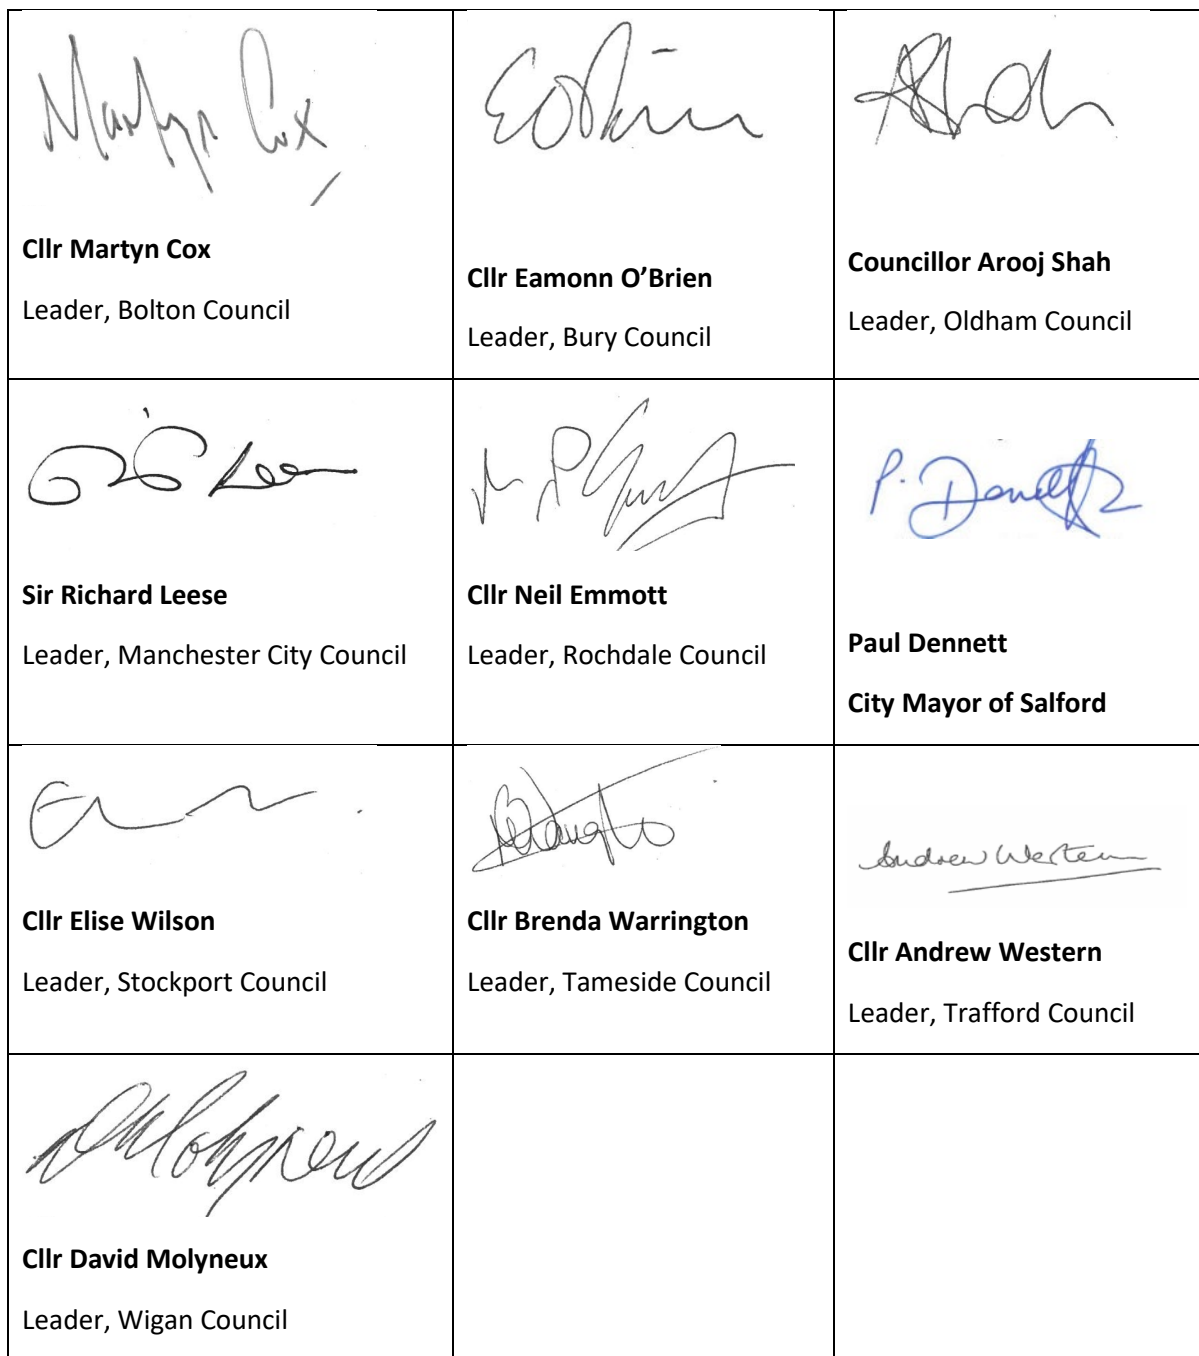 Martyn Cox
Cllr Martyn Cox
Leader, Bolton Council
EO'Brien
Cllr Eamonn O’Brien
Leader, Bury Council
AShah
Councillor Arooj Shah
Leader, Oldham Council
Sir Richard Leese
Leader, Manchester City Council
Cllr Neil Emmott
Leader, Rochdale Council
P. Dennett
Paul Dennett
City Mayor of Salford
Cllr Elise Wilson
Leader, Stockport Council
Cllr Brenda Warrington
Leader, Tameside Council
Andrew Western
Cllr Andrew Western
Leader, Trafford Council
DMolyneux
Cllr David Molyneux
Leader, Wigan Council